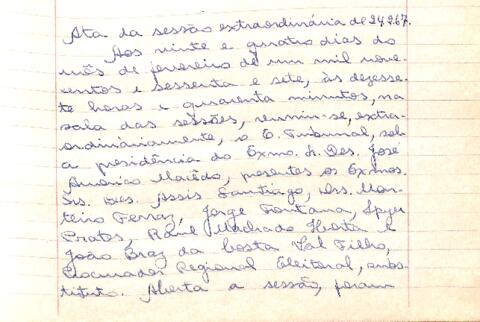 Ata da sessão extraordinária de 24.2.67.
Aos vinte e quatro dias do
mês de fevereiro de um mil nove-
centos e sessenta e sete, às dezesse-
te horas e quarenta minutos, na
sala das sessões, reuniu-se, extra-
ordinàriamente, o E. Tribunal, sob
a presidência do Exmo. Sr. Des. José
Américo Macêdo, presentes os Exmos.
Srs. Des. Assis Santiago, Drs. Mon-
teiro Ferraz, Jorge Fontana, Spyer
Prates, Raul Machado Horta e
João Braz da Costa Val Filho,
Procurador Regional Eleitoral, subs-
tituto. Aberta a sessão, foram